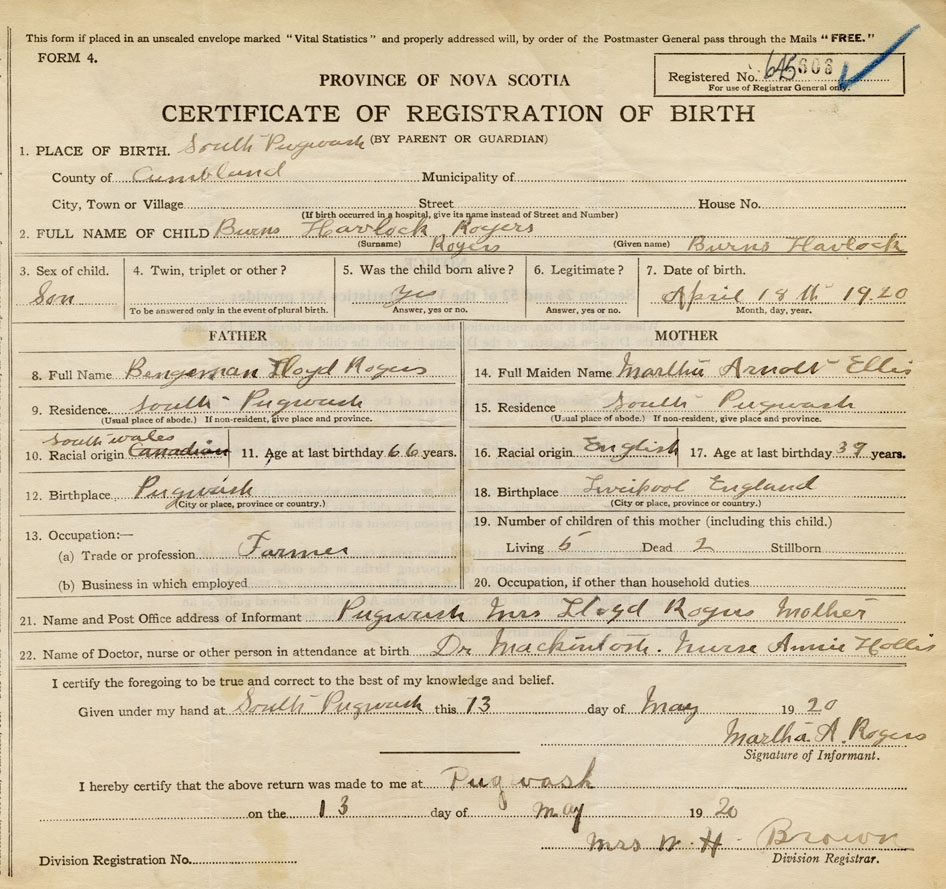 This form if placed in an unsealed envelope marked "Vital Statistics" and properly addressed will, by order of the Postmaster General pass through the Mails "FREE."
FORM 4.
PROVINCE OF NOVA SCOTIA
Registered No. 608
For use of Registrar General only.
CERTIFICATE OF REGISTRATION OF BIRTH
(BY PARENT OR GUARDIAN)
1. PLACE OF BIRTH. South Pugwash
County of Cumbland Municipality of
City, Town or Village Street House No.
(If birth occurred in a hospital, give its name instead of Street and Number)
2. FULL NAME OF CHILD Burns Havlock Rogers
(Surname) Rogers (Given name) Burns Havlock
3. Sex of child. 4. Twin, triplet or other? 5. Was the child born alive? 6. Legitimate? 7. Date of birth.
Son Yes April 18th 1920
To be answered only in the event of plural birth. Answer, yes or no. Answer, yes or no. Month, day, year.
FATHER MOTHER
8. Full Name Bengeman Lloyd Rogers 14. Full Maiden Name Martha Arnold Ellis
9. Residence South Pugwash 15. Residence South Pugwash
(Usual place of abode.) If non-resident, give place and province. (Usual place of abode.) If non-resident, give place and province.
South wales
10. Racial origin Canadian 11. Age at last birthday 66 years. 16. Racial origin English 17. Age at last birthday 39 years.
12. Birthplace Pugwash 18. Birthplace Liverpool England
(City or place, province or country.) (City or place, province or country.)
13. Occupation:— 19. Number of children of this mother (including this child.)
(a) Trade or profession Farmer Living 5 Dead 2 Stillborn
(b) Business in which employed 20. Occupation, if other than household duties
21. Name and Post Office address of Informant Pugwash Mrs Lloyd Rogers Mother
22. Name of Doctor, nurse or other person in attendance at birth Dr Mackintosh. Nurse Annie Hollis
I certify the foregoing to be true and correct to the best of my knowledge and belief.
Given under my hand at South Pugwash this 13 day of May 1920
Martha A. Rogers
Signature of Informant.
I hereby certify that the above return was made to me at Pugwash
on the 13 day of May 1920
Mrs W. H. Brown
Division Registration No. Division Registrar.